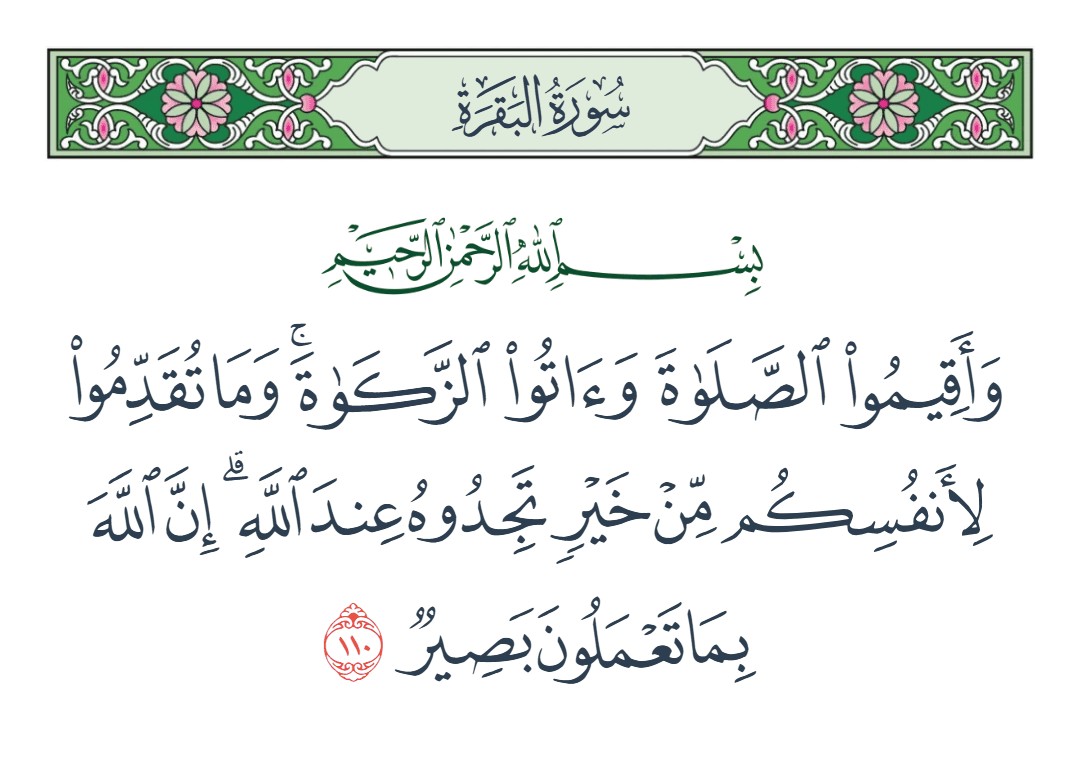 سُورَةُ البَقَرَةِ
بِسْمِ ٱللَّهِ ٱلرَّحْمَٰنِ ٱلرَّحِيمِ
وَأَقِيمُوا۟ ٱلصَّلَوٰةَ وَءَاتُوا۟ ٱلزَّكَوٰةَ ۚ وَمَا تُقَدِّمُوا۟
لِأَنفُسِكُم مِّنْ خَيْرٍ تَجِدُوهُ عِندَ ٱللَّهِ ۗ إِنَّ ٱللَّهَ
بِمَا تَعْمَلُونَ بَصِيرٌ ١١٠